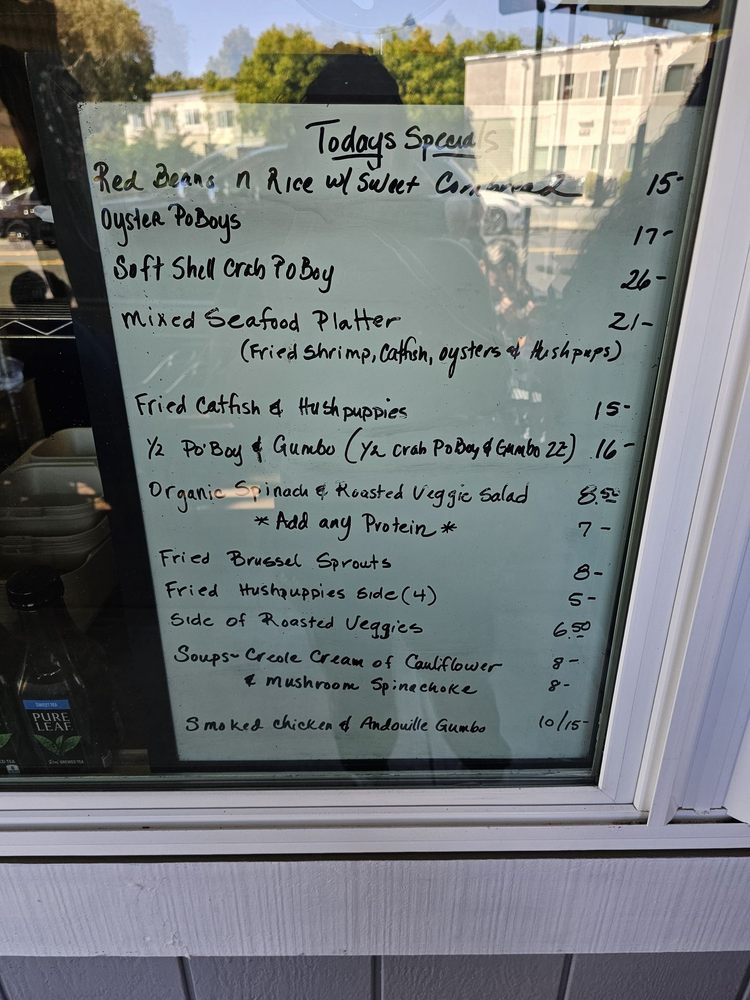 Todays Specials
Red Beans n Rice w/ Sweet Cornbread 15-
Oyster PoBoys 17-
Soft Shell Crab PoBoy 26-
Mixed Seafood Platter 21-
(Fried Shrimp, Catfish, oysters & Hushpups)
Fried Catfish & Hushpuppies 15-
1/2 Po'Boy & Gumbo (1/2 crab PoBoy & Gumbo 22) 16-
Organic Spinach & Roasted Veggie Salad 8.50
* Add any Protein * 7-
Fried Brussel Sprouts 8-
Fried Hushpuppies Side (4) 5-
Side of Roasted Veggies 6.50
Soups~ Creole Cream of Cauliflower 8-
& Mushroom Spinachoke 8-
Smoked chicken & Andouille Gumbo 10/15-
SWEET TEA
PURE
LEAF